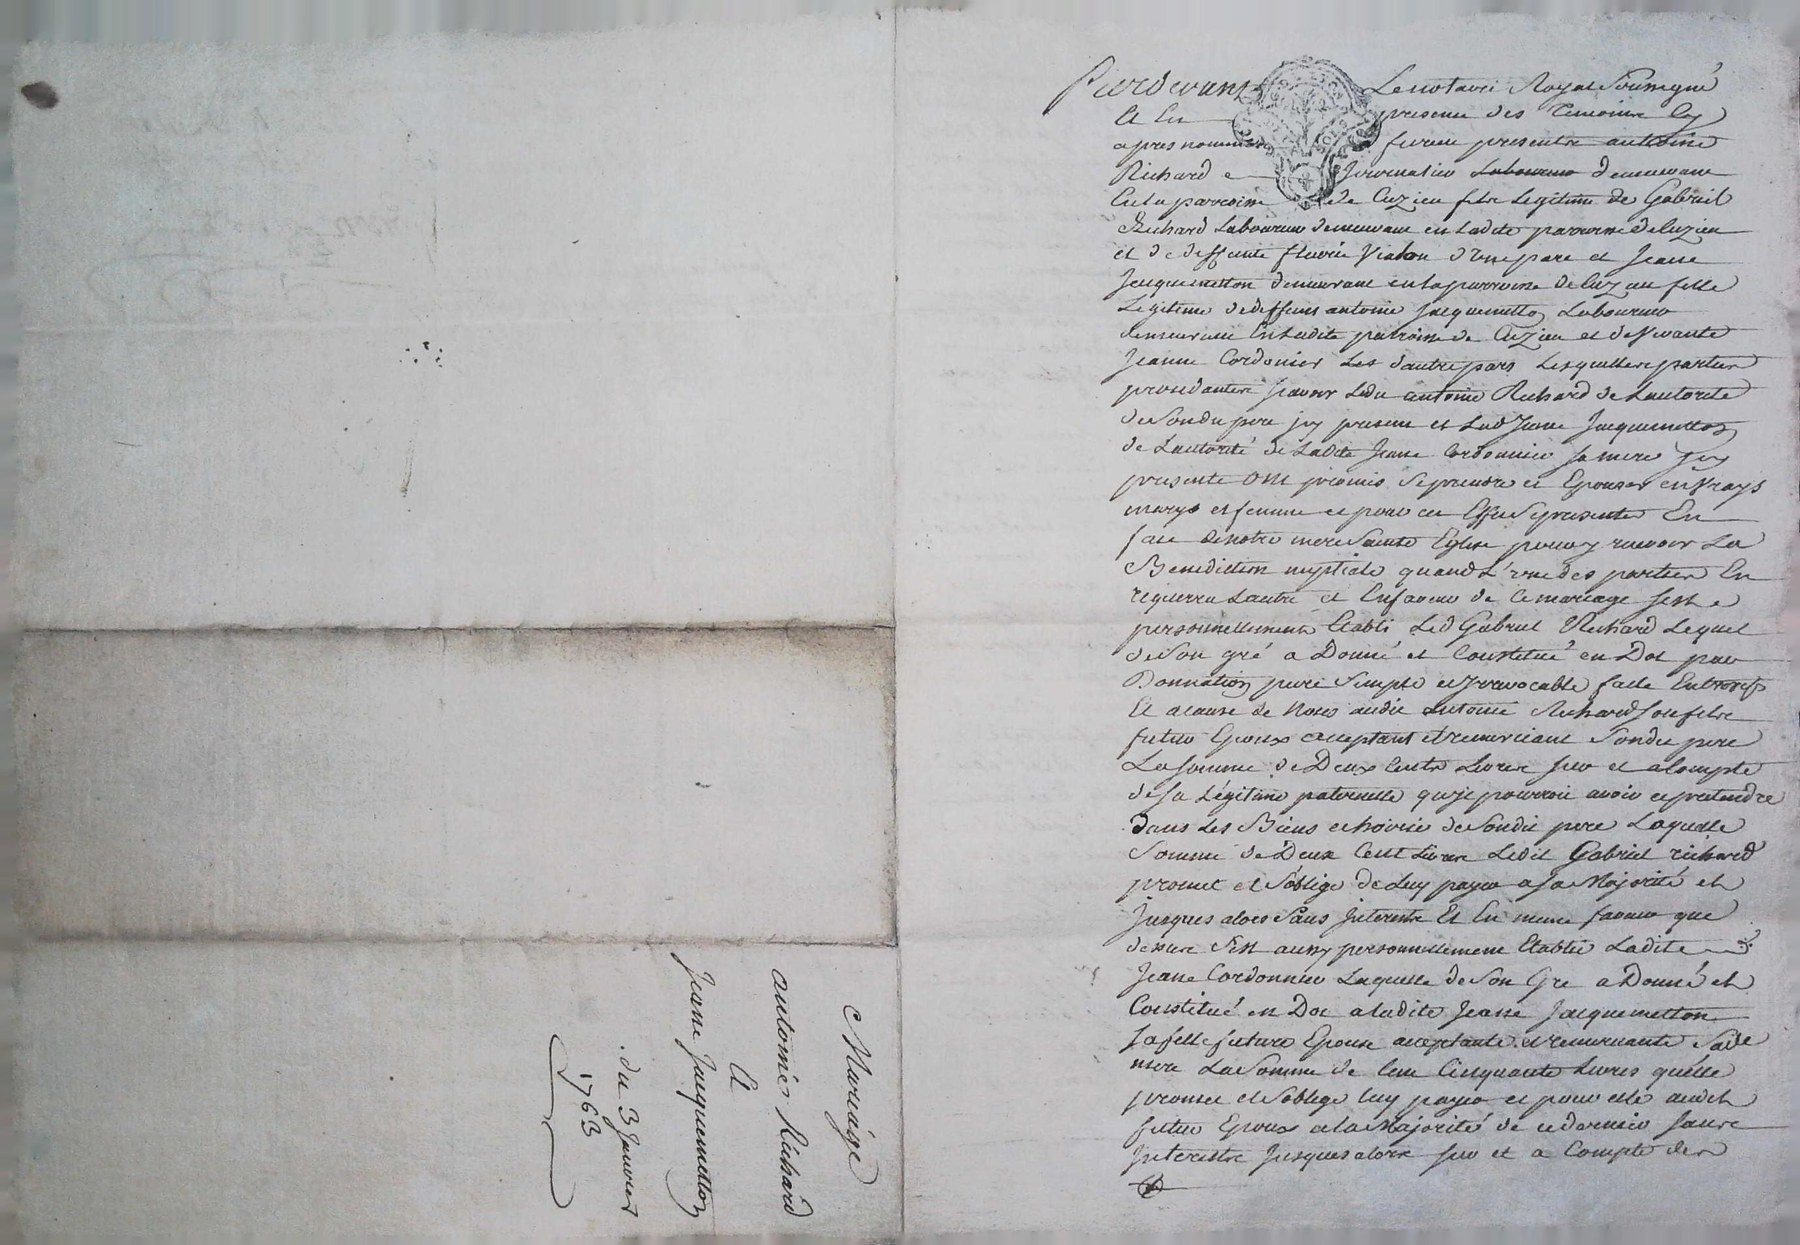 Mariage
antoine Richard
A
Jeanne Jacquemetton
du 3 Janvier
1763
Pardevant Le notaire Royal Soussigné
Et En presence des temoins Cy
apres nommés furent presentes antoine
Richard Journalier Laboureur demeurant
En la parroisse de Cuzieu fils Legitime de Gabriel
Richard Laboureur demeurant en ladite parroisse de Cuzieu
et de deffunte fleurie Vialon d'une part et Jeane
Jacquemetton demeurant en la parroisse de Cuzieu fille
Legitime de deffunt antoine Jacquemetton Laboureur
demeurant En Ladite parroisse de Cuzieu et de vivante
Jeanne Cordonier Les d'autre part Lesquelles parties
procedantes scavoir Ledit antoine Richard de Lautorité
de Sondit pere icy present et Lad Jeane Jacquemetton
de Lautorité de Ladite Jeane Cordonnier sa mere Icy
presente ont promis Se prendre et Epouser en Vrays
marys et femme et pour cet Effet Se presenter En
face de notre mere Sainte Eglise pour y recevoir La
Benediction nuptiale quand L'une des parties En
requerra Lautre et En faveur de Ce mariage s'est
personnellement Etabli Led Gabriel Richard Lequel
de Son gré a Donné et Constitué en Dot par
Donnation pure Simple et Irrevocable faite Entre vifs
Et a cause de Noces audit Antoine Richard son fils
futur Epoux acceptant et remerciant Sondit pere
La Somme de Deux Cents Livres sur et a Compte
de sa Légitime paternelle qu'il pourroit avoir et pretendre
dans Les Biens et hoirie de Sondit pere Laquelle
Somme de Deux Cent Livres Ledit Gabriel richard
promet et Soblige de Luy payer a sa Majorité et
Jusques alors Sans Interests Et En meme faveur que
dessus S'est aussy personnellement Etablie Ladite
Jeane Cordonnier Laquelle de Son Gré a Donné et
Constitué en Dot a ladite Jeane Jacquemetton
sa fille future Epouse acceptante et remerciante Sadte
mere La Somme de Cent Cinquante Livres quelle
promet et Soblige luy payer et pour elle audit
futur Epoux a la Majorité de ce dernier sans
Interests Jusques alors sur et a Compte des